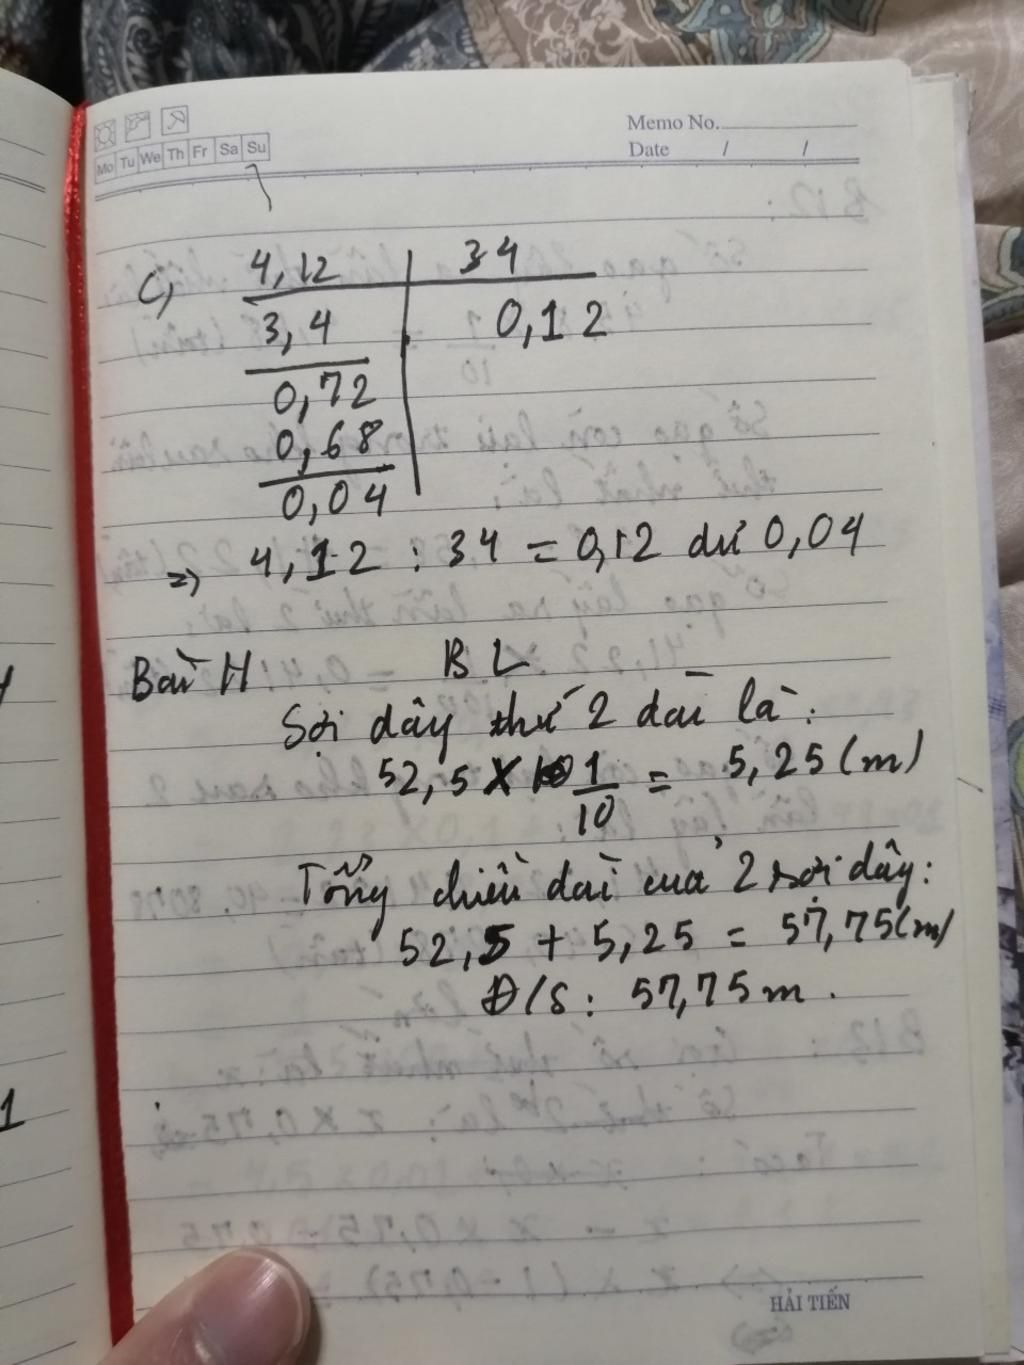 Memo No.
Mo Tu We Th Fr Sa Su
Date / /
C, 4,12 34
3,4 0,12
0,72
0,68
0,04
=> 4,12 : 34 = 0,12 dư 0,04
Bài 11: BL
Sợi dây thứ 2 dài là:
52,5 x 1/10 = 5,25 (m)
Tổng chiều dài của 2 sợi dây:
52,5 + 5,25 = 57,75 (m)
Đ/S: 57,75 m.
1
HẢI TIẾN